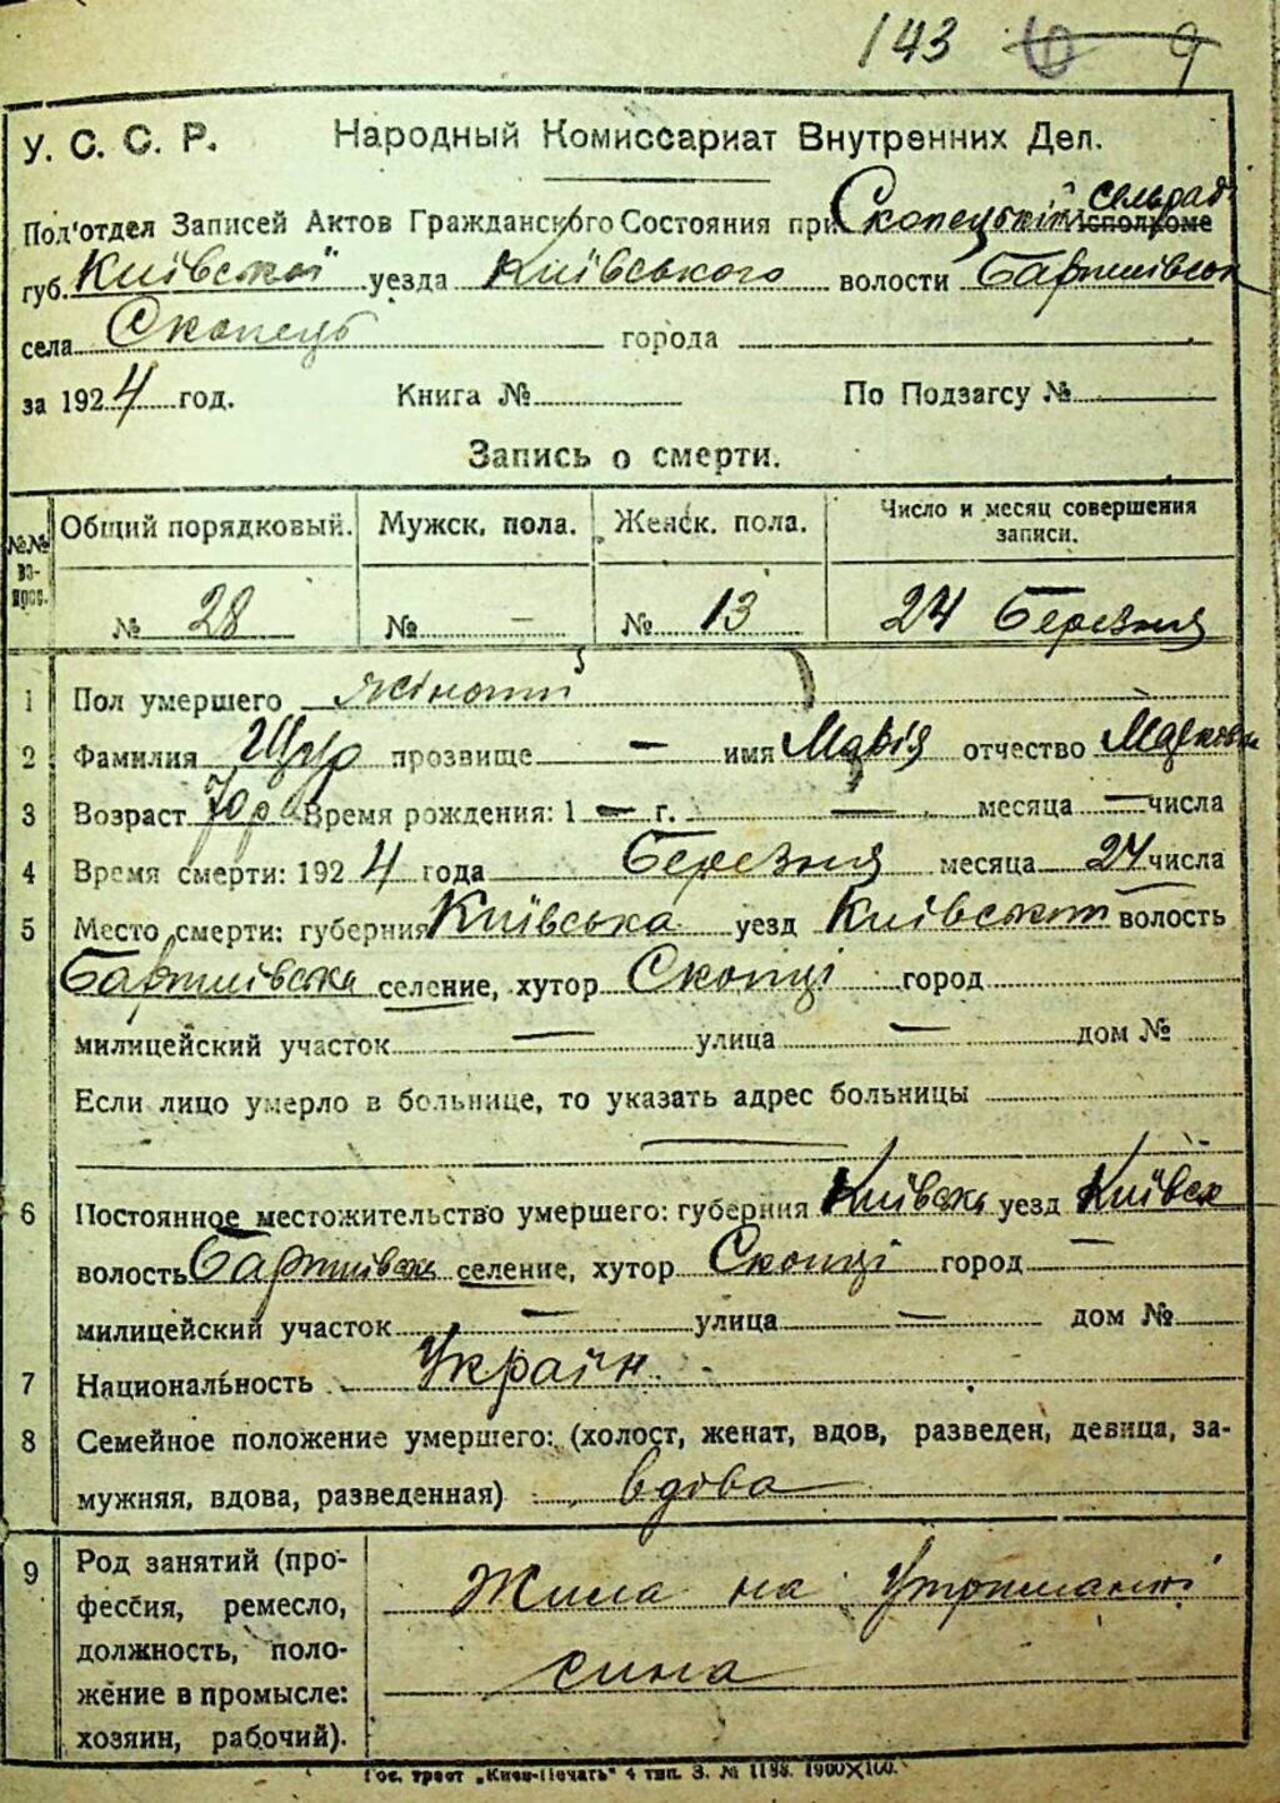 143 6 9
У. С. С. Р. Народный Комиссариат Внутренних Дел.
сельрад
Под'отдел Записей Актов Гражданского Состояния при Скопецькій Исполкоме
губ. Київської уезда Київського волости
села Скопець города
за 1924 год. Книга № По Подзагсу №
Запись о смерти.
№№ во-прос. Общий порядковый. Мужск. пола. Женск. пола. Число и месяц совершения записи.
№ 28 № — № 13 24 Березня
1 Пол умершего жіночої
2 Фамилия Щур прозвище — имя Марія отчество Марковн
3 Возраст 70 р Время рождения: 1 — г. — месяца — числа
4 Время смерти: 1924 года Березня месяца 24 числа
5 Место смерти: губерния Київська уезд Київський волость
селение, хутор Скопці город
милицейский участок — улица — дом №
Если лицо умерло в больнице, то указать адрес больницы
—
6 Постоянное местожительство умершего: губерния Київська уезд Київськ
волость селение, хутор Скопці город —
милицейский участок — улица — дом №
7 Национальность Україн.
8 Семейное положение умершего: (холост, женат, вдов, разведен, девица, за-
мужняя, вдова, разведенная) вдова
9 Род занятий (про-
фессия, ремесло,
должность, поло-
жение в промысле:
хозяин, рабочий).
Жила на Утриманні
сина
Гос. трест „Киев-Печать" 4 тип. З. № 1188. 1900X100.